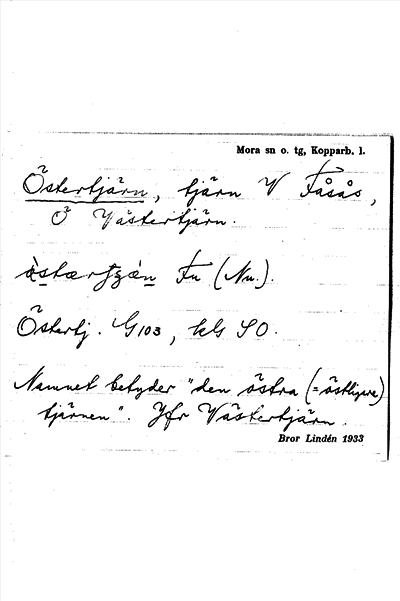 Mora sn o. tg, Kopparb. l.
Östertjärn, tjärn V Fåsås,
Ö Västertjärn.
Fu (Nu.).
Östertj. G103, kls SO.
Namnet betyder "den östra (=östligare)
tjärnen". Jfr Västertjärn.
Bror Lindén 1933